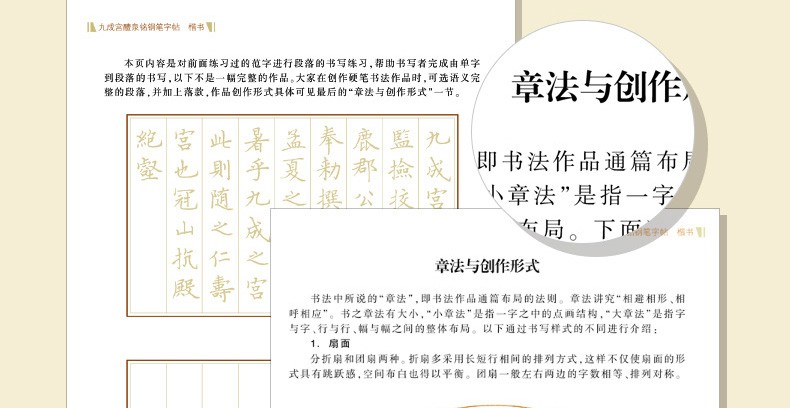 九成宫醴泉铭钢笔字帖 楷书
本页内容是对前面练习过的范字进行段落的书写练习，帮助书写者完成由单字
到段落的书写，以下不是一幅完整的作品。大家在创作硬笔书法作品时，可选语义完
整的段落，并加上落款，作品创作形式具体可见最后的“章法与创作形式”一节。
九成宫
監撿挍
鹿郡公
奉勅撰
孟夏之
暑乎九成之宫
此則随之仁壽
宫也冠山抗殿
絶壑
章法与创作
即书法作品通篇布局
小章法”是指一字
布局。下面
钢笔字帖 楷书
章法与创作形式
书法中所说的“章法”，即书法作品通篇布局的法则。章法讲究“相避相形、相
呼相应”。书之章法有大小，“小章法”是指一字之中的点画结构，“大章法”是指字
与字、行与行、幅与幅之间的整体布局。以下通过书写样式的不同进行介绍：
1. 扇面
分折扇和团扇两种。折扇多采用长短行相间的排列方式，这样不仅使扇面的形
式具有跳跃感，空间布白也得以平衡。团扇一般左右两边的字数相等、排列对称。